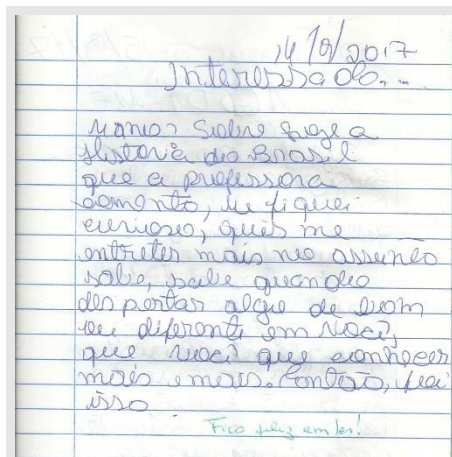 14/9/2017
Interessado...
Mano? Sobre hoje a
História do Brasil
que a professora
comento, eu fiquei
curioso, quis me
entreter mais no assunto
sabe, sabe quando
despertar algo de bom
ou diferente em você,
que você que conhecer
mais e mais. Então, foi
isso
Fico feliz em ler!